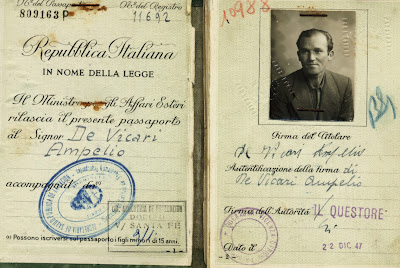 N.o del Passaporto
809163 P
N.o del Registro
11692
Repubblica Italiana
IN NOME DELLA LEGGE
Il Ministro per gli Affari Esteri
rilascia il presente passaporto
al Signor De Vicari
Ampelio
accompagnato da
a) Possono iscriversi sul passaporto i figli minori di 15 anni.
- 1 -
10988
Firma del Titolare
De Vicari Ampelio
Autentificazione della firma di
De Vicari Ampelio
Firma dell'Autorità IL QUESTORE
Dato il 22 DIC. 47
- 2 -